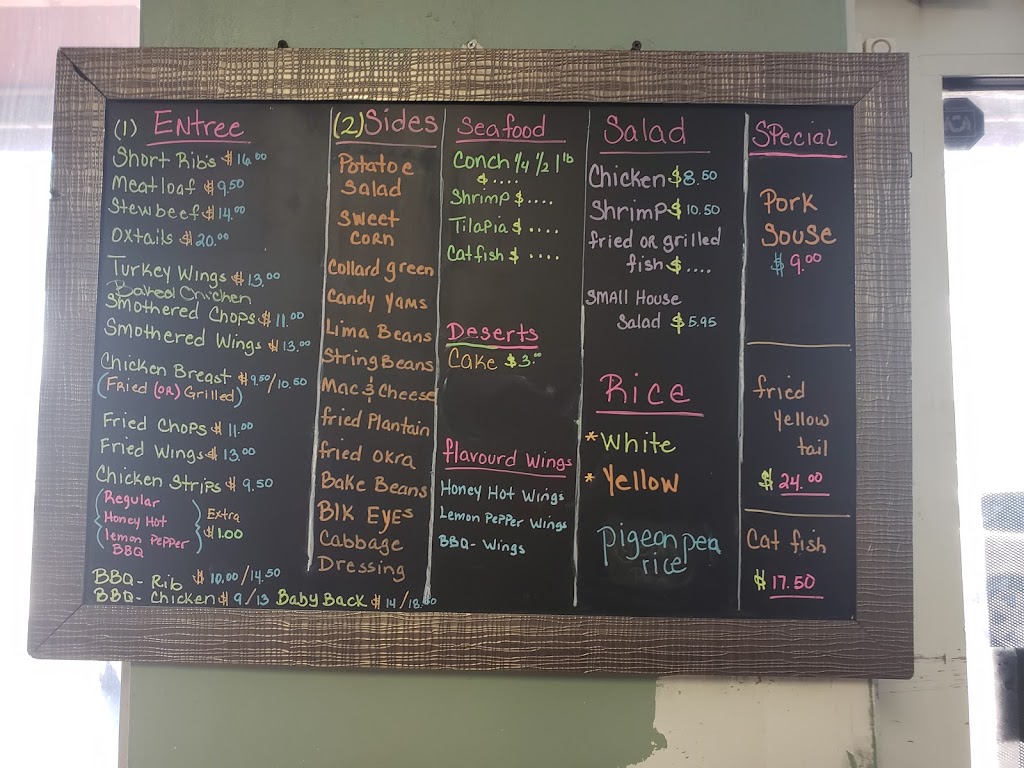 (1) Entree
Short Ribs $16.00
Meatloaf $9.50
Stewbeef $14.00
Oxtails $20.00
Turkey Wings $13.00
Baked Chicken
Smothered Chops $11.00
Smothered Wings $13.00
Chicken Breast $9.50/10.50
(Fried (OR) Grilled)
Fried Chops $11.00
Fried Wings $13.00
Chicken Strips $9.50
Regular
Honey Hot
lemon Pepper
BBQ
Extra
$1.00
BBQ-Rib $10.00/14.50
BBQ-Chicken $9/13 Baby Back $14/18.00
(2) Sides
Potatoe
Salad
Sweet
Corn
Collard green
Candy Yams
Lima Beans
String Beans
Mac & Cheese
fried Plantain
fried okra
Bake Beans
Blk Eyes
Cabbage
Dressing
Seafood
Conch 1/4 1/2 1 lb
$....
Shrimp $....
Tilapia $....
Catfish $....
Deserts
Cake $3.00
flavourd Wings
Honey Hot Wings
Lemon Pepper Wings
BBQ-Wings
Salad
Chicken $8.50
Shrimp $10.50
fried or grilled
fish $....
Small House
Salad $5.95
Rice
*White
*Yellow
pigeon pea
rice
Special
Pork
Souse
$9.00
fried
Yellow
tail
$24.00
Cat fish
$17.50